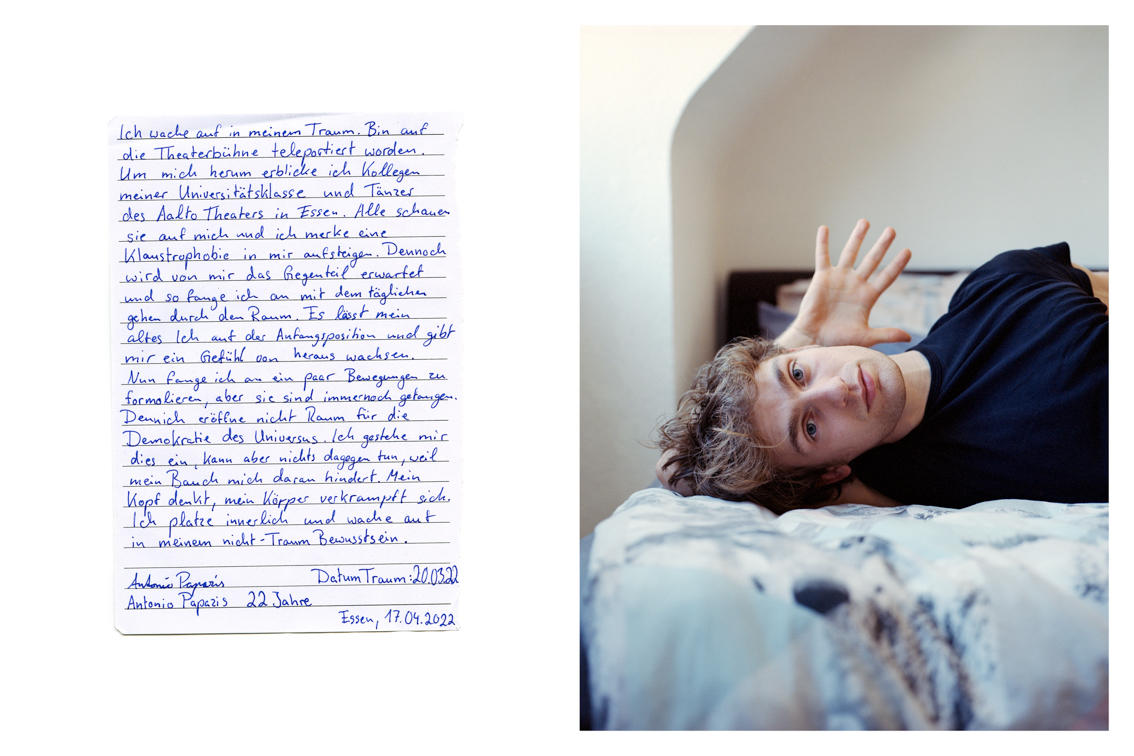 Ich wache auf in meinem Traum. Bin auf
die Theaterbühne teleportiert worden.
Um mich herum erblicke ich Kollegen
meiner Universitätsklasse und Tänzer
des Aalto Theaters in Essen. Alle schauen
sie auf mich und ich merke eine
Klaustrophobie in mir aufsteigen. Dennoch
wird von mir das Gegenteil erwartet
und so fange ich an mit dem täglichen
gehen durch den Raum. Es lässt mein
altes Ich auf der Anfangsposition und gibt
mir ein Gefühl von heraus wachsen.
Nun fange ich an ein paar Bewegungen zu
formolieren, aber sie sind immernoch gefangen.
Dennich eröffne nicht Raum für die
Demokratie des Universus. Ich gestehe mir
dies ein, kann aber nichts dagegen tun, weil
mein Bauch mich daran hindert. Mein
Kopf denkt, mein Körper verkrampft sich.
Ich platze innerlich und wache auf
in meinem nicht-Traum Bewusstsein.
Antonio Papazis Datum Traum: 20.03.22
Antonio Papazis 22 Jahre
Essen, 17.04.2022